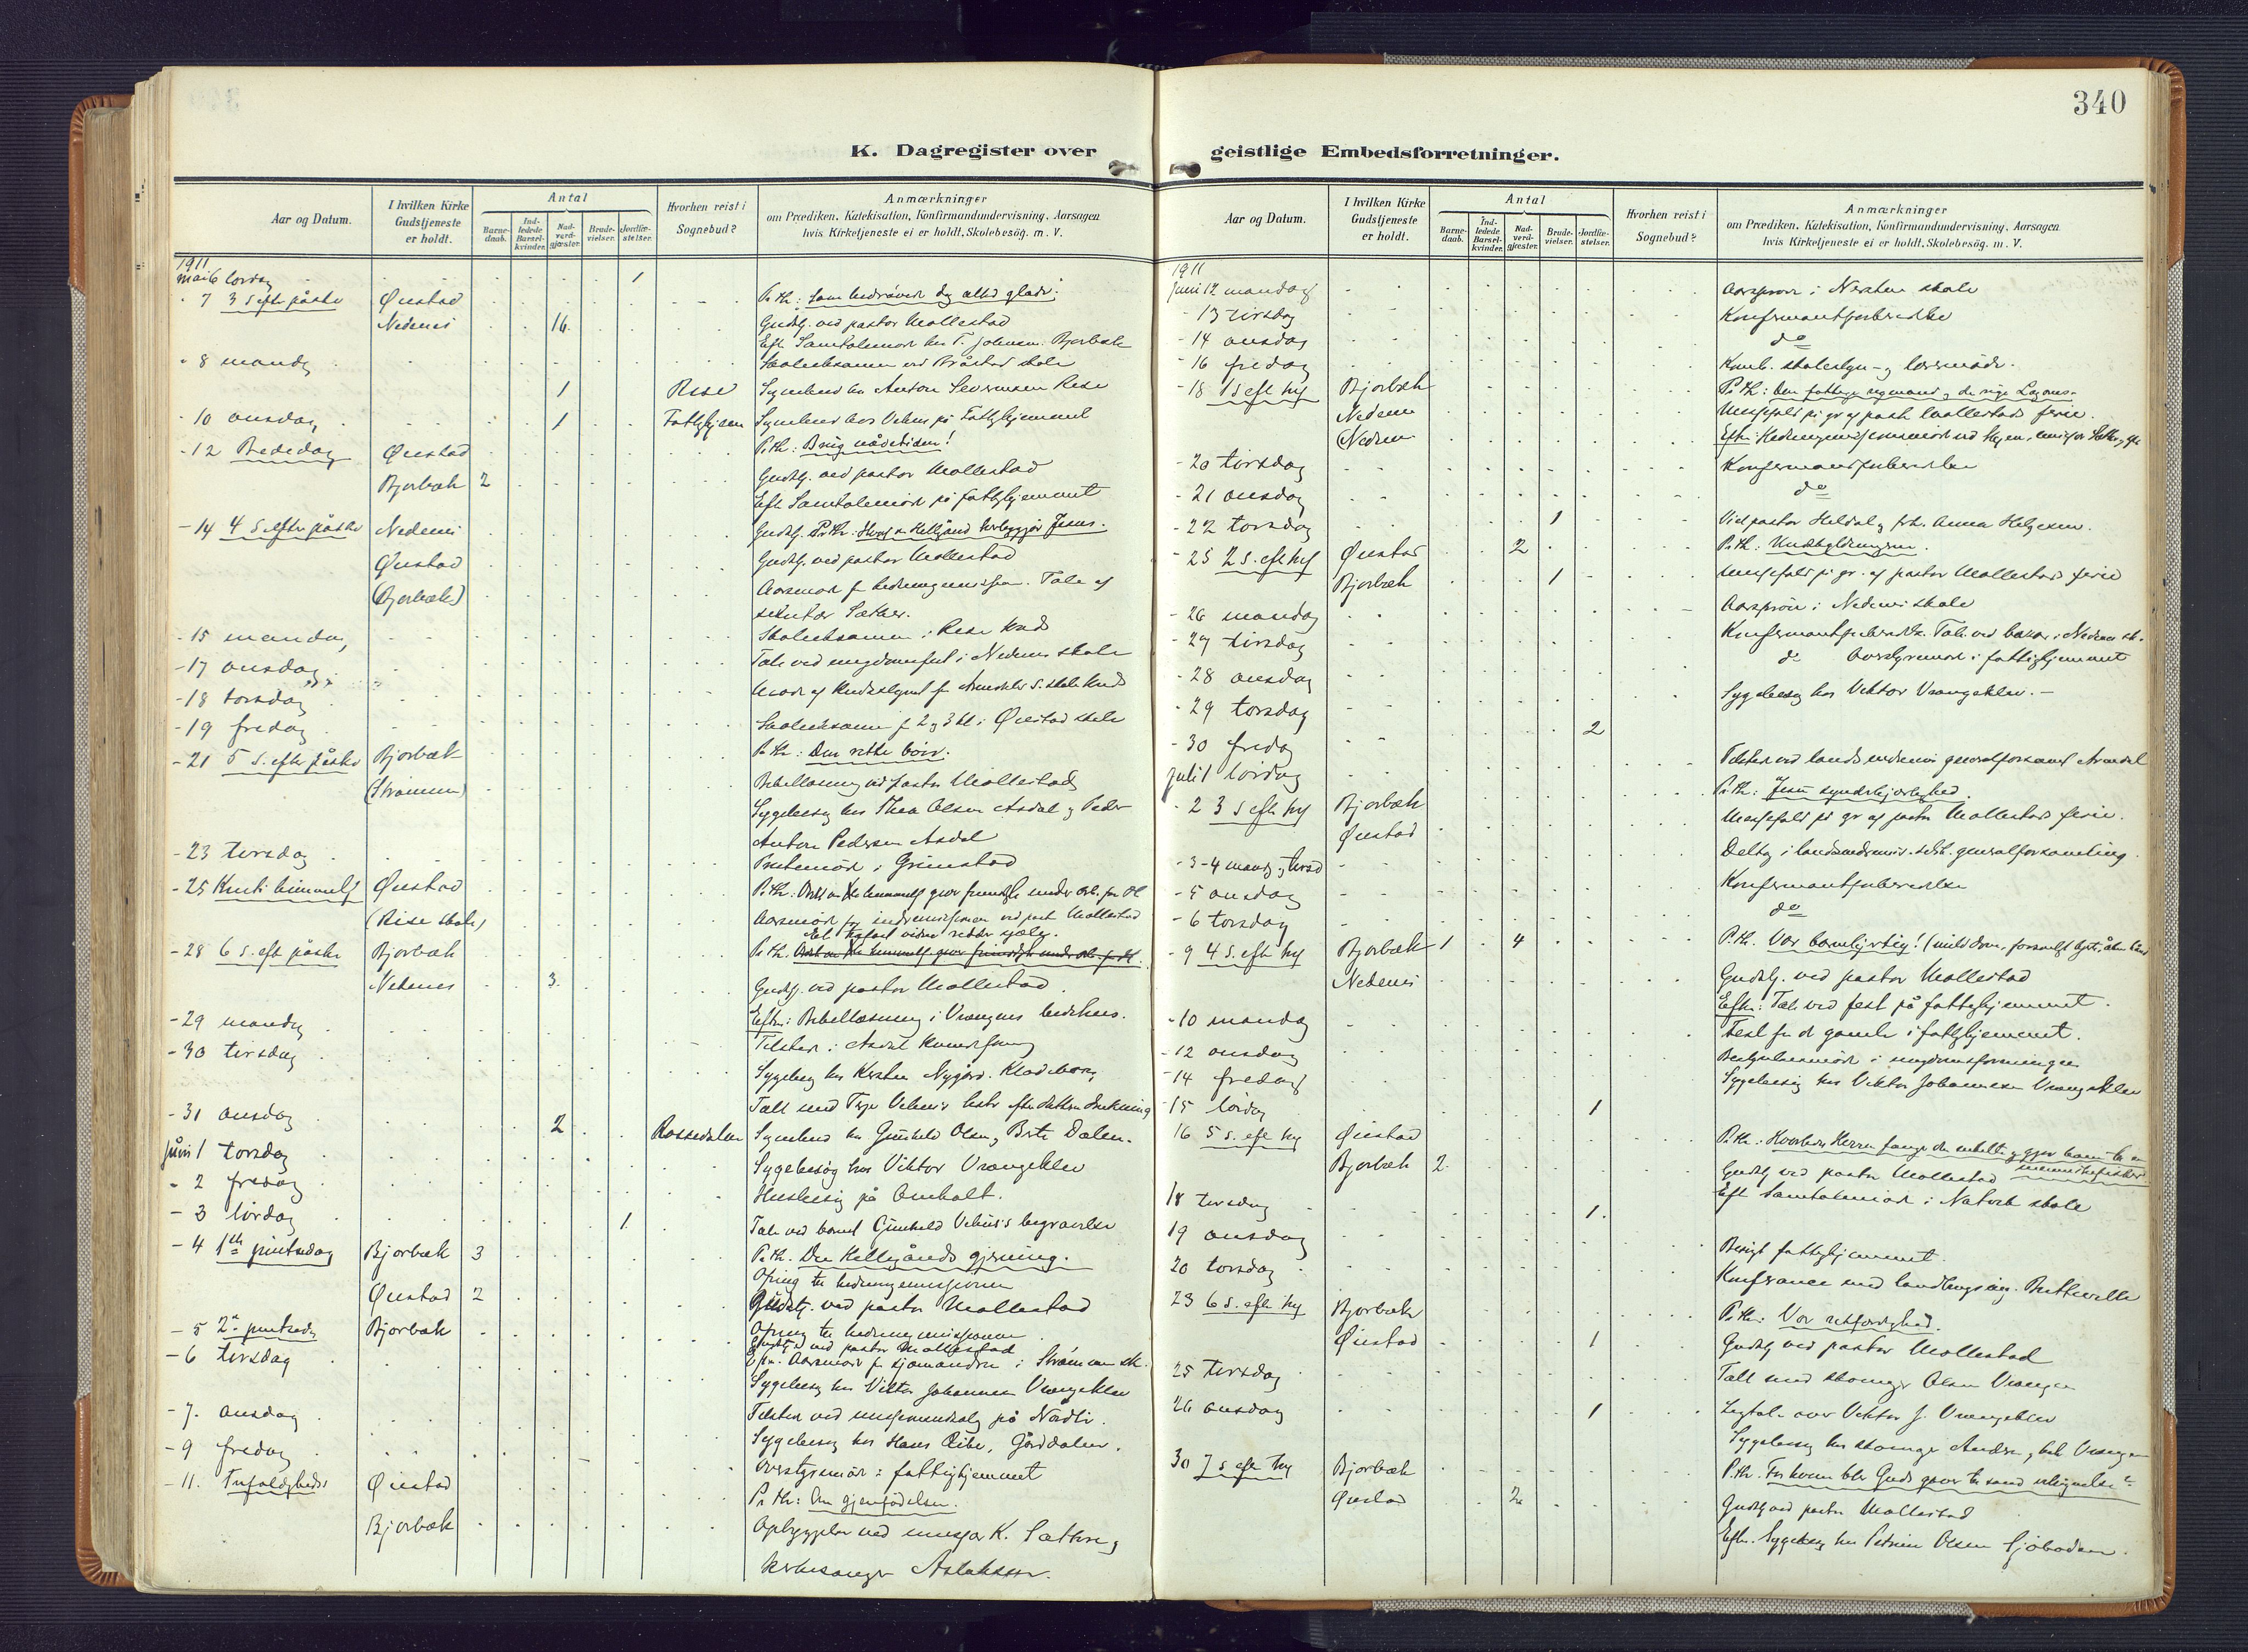 340
K. Dagregister over
geistlige Embedsforretninger.
Aar og Datum.
I hvilken Kirke Gudstjeneste er holdt.
Antal
Barne-daab.
Ind-ledede Barsel-kvinder.
Nad-verd-gjæster.
Brude-vielser.
Jordfæ-stelser.
Hvorhen reist i Sognebud?
Anmærkninger
om Prædiken, Katekisation, Konfirmandundervisning, Aarsagen
hvis Kirketjeneste ei er holdt, Skolebesøg. m. V.
1911
Mai 6 lørdag 1
7 3 S eft påske Øiestad P. th: Som bedrøvede dog altid glade.
Nedenes 16 Gudstj. ved pastor Mollestad
Eft. Samtalemøde hos T. Johnsen. Bjorbæk
8 mandag Skoleeksamen ved Bråstad skole
1 Rise Sognebud hos Anton Severinsen Rise
10 onsdag 1 Fattighjem Sognebud hos Velius på Fattighjemmet
12 Bededag Øiestad P. th: Brug nådetiden!
Bjorbæk 2 Gudstj. ved pastor Mollestad
Eft. Samtalemøde på fattighjemmet
14 4 S. efter påske Nedenes Gudstj. P. th:
Øiestad Gudstj. ved pastor Mollestad
(Bjorbæk) Aarsmøde f. hedningemissionen. Tale af
sekretær Sæther.
15 mandag Skoleeksamen i Rise kreds
17 onsdag Tale ved ungdomsfest i Nedenes skole
18 torsdag
19 fredag Skoleeksamen f 2 og 3 kl i Øiestad skole
21 5 S. efter påske Bjorbæk P. th: Den rette bøn.
(Strømmen) Bibellæsning ved pastor Mollestad
Sygebesøg hos Thea Olsen Asdal og Peder
Anton Pedersen Asdal
23 tirsdag Prestemøde i Grimstad
25 Kristi himmelf Øiestad P. th:
(Rise skole) Aarsmøde for indremissionen ved past Mollestad
28 6 S. eft påske Bjorbæk P. th.
Nedenes 3 Gudstj. ved pastor Mollestad.
Eftm: Bibellæsning i Vrengens bedehus.
29 mandag Tilstede i Asdal kvindeforening
30 tirsdag Sygebesøg hos Kirsten Nygård. Klodeborg
31 onsdag
2 Rossedalen Sognebud hos Gunhild Olsen, Brte Dalen.
Juni 1 torsdag Sygebesøg hos Viktor Vrangeklev
2 fredag Husbesøg på Omholt.
3 lørdag 1 Tale ved barnet Gunhild Velius's begravelse
4 1ste pintsedag Bjorbæk 3 P. th. Den Helligånds gjerning.
Ofring til hedningemissionen
Øiestad 2 Gudstj. ved pastor Mollestad
5 2. pintsedag Bjorbæk Ofring til hedningemissionen
Gudstj. ved pastor Mollestad
6 tirsdag Eftm. Aarsmøde for sjømandsm i Strømmen sk.
Sygebesøg hos Viktor Johannesen Vrangeklev
7. onsdag Tilstede ved på Nordli.
9 fredag Sygebesøg hos Hans Ribe, Gårddalen.
Overstyremøde i fattighjemmet
11. Trefoldigheds Øiestad P. th: Om gjenfødelsen.
Bjorbæk Opbyggelse ved K. Sæther og
kirkesanger Aslaksen.
Aar og Datum.
I hvilken Kirke Gudstjeneste er holdt.
Antal
Barne-daab.
Ind-ledede Barsel-kvinder.
Nad-verd-gjæster.
Brude-vielser.
Jordfæ-stelser.
Hvorhen reist i Sognebud?
Anmærkninger
om Prædiken, Katekisation, Konfirmandundervisning, Aarsagen
hvis Kirketjeneste ei er holdt, Skolebesøg. m. V.
1911
Juni 12 mandag Aarsprøve i Nersten skole
13 tirsdag Konfirmantforberedelse
14 onsdag do
16 fredag Komb. skolestyre- og lærermøde.
18 1 S eft tref Bjorbæk P. th: Den fattige
Nedenes Messefald på gr af pastor Mollestads ferie.
(Nedenes Eftm:
20 tirsdag Konfirmandforberedelse
21 onsdag do
22 torsdag 1 Viet pastor Heldal og frk. Anna Helgesen.
25 2 S. eft tref Øiestad 2 P. th:
Bjorbæk 1 Messefald på gr. af pastor Mollestads ferie
26 mandag Aarsprøve i Nedenes skole
27 tirsdag Konfirmantforberedelse. Tale ved basar i Nedenes sk.
28 onsdag do Overstyremøde i fattighjemmet
29 torsdag Sygebesøg hos Viktor Vrangeklev. –
30 fredag 2
Juli 1 lørdag Tilstede ved generalforsaml Arendal
2 3 S eft tref Bjorbæk P. th: Jesu synderkjærlighed.
Øiestad Messefald på gr af pastor Mollestads ferie.
3-4 mandag, tirsd Deltog i generalforsamling.
5 onsdag Konfirmantforberedelse
6 torsdag do
9 4 S. eft tref Bjorbæk 1 4 P. th. Vær barmhjertig!
Nedenes Gudstj. ved pastor Mollestad
Eftm: Tale ved fest på fattighjemmet.
10 mandag Fest for de gamle i fattighjemmet.
12 onsdag Bestyrelsesmøde i ungdomsforeningen
14 fredag Sygebesøg hos Viktor Johannesen Vrangeklev
15 lørdag 1
16 5 S. eft tref Øiestad P. th: Hvorledes Herren fanger den enkelte og gjør ham til en
menneskefisker.
Bjorbæk 2 Gudstj ved pastor Mollestad
Eft Samtalemøde i Natvik skole
18 tirsdag 1.
19 onsdag Besøgt fattighjemmet.
20 torsdag Konferance med
23 6 S. eft tref Bjorbæk P. th: Vor retfærdighed.
Øiestad 1 Gudstj ved pastor Mollestad
25 tirsdag Talt med Olsen Vrengen
26 onsdag 1 Ligtale over Viktor J. Vrangeklev
Sygebesøg hos
30 7 S eft tref Bjorbæk P. th.
Øiestad 2 Gudstj ved pastor Mollestad
Eftm. Sygebesøg hos Petrine Olsen Sjøboden.